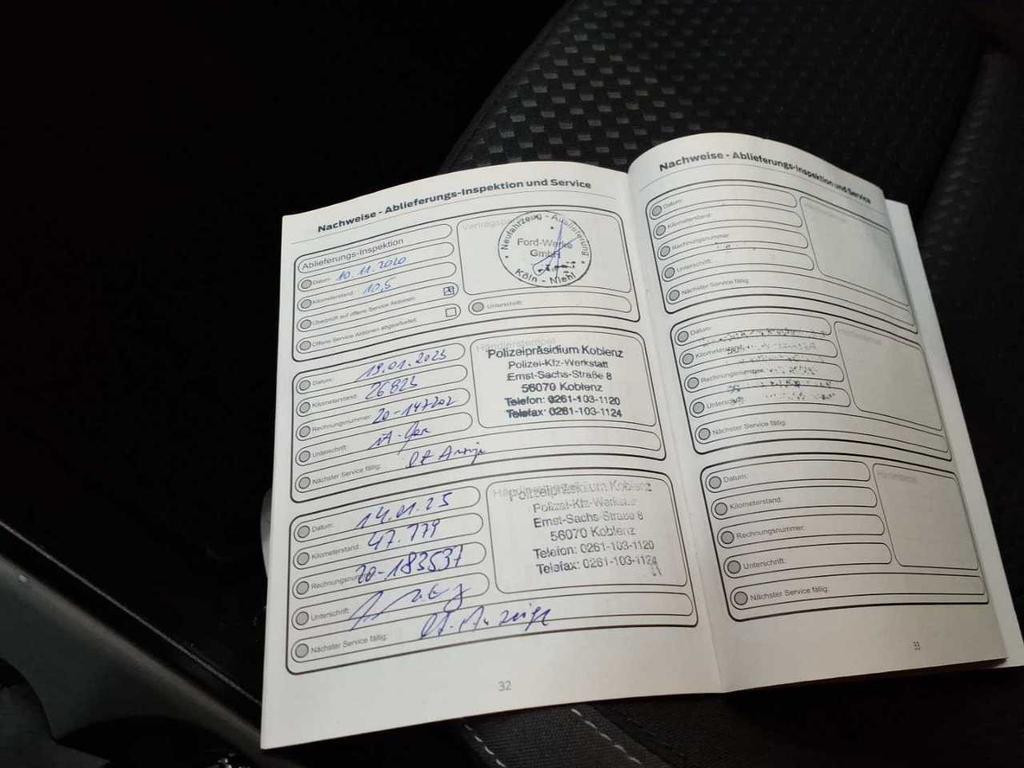 Nachweise - Ablieferungs-Inspektion und Service
Ablieferungs-Inspektion
Datum: 10.11.2020
Kilometerstand: 10,5
Überprüft auf offene Service Aktionen:
Offene Service Aktionen abgearbeitet:
Neufahrzeug - Auslieferung
Ford-Werke
GmbH
Köln - Niehl
Unterschrift:
Datum: 19.01.2023
Kilometerstand: 26825
Rechnungsnummer: 20-147202
Unterschrift:
Nächster Service fällig:
Händlerstempel
Polizeipräsidium Koblenz
Polizei-Kfz-Werkstatt
Ernst-Sachs-Straße 8
56070 Koblenz
Telefon: 0261-103-1120
Telefax: 0261-103-1124
Datum: 14.01.25
Kilometerstand: 47.779
Rechnungsnummer: 20-183537
Unterschrift:
Nächster Service fällig: Anzeige
Polizeipräsidium Koblenz
Polizei-Kfz-Werkstatt
Ernst-Sachs-Straße 8
56070 Koblenz
Telefon: 0261-103-1120
Telefax: 0261-103-1124
32
Nachweise - Ablieferungs-Inspektion und Service
Datum:
Kilometerstand:
Rechnungsnummer:
Unterschrift:
Nächster Service fällig:
Datum:
Kilometerstand:
Rechnungsnummer:
Unterschrift:
Nächster Service fällig:
Datum:
Kilometerstand:
Rechnungsnummer:
Unterschrift:
Nächster Service fällig:
33